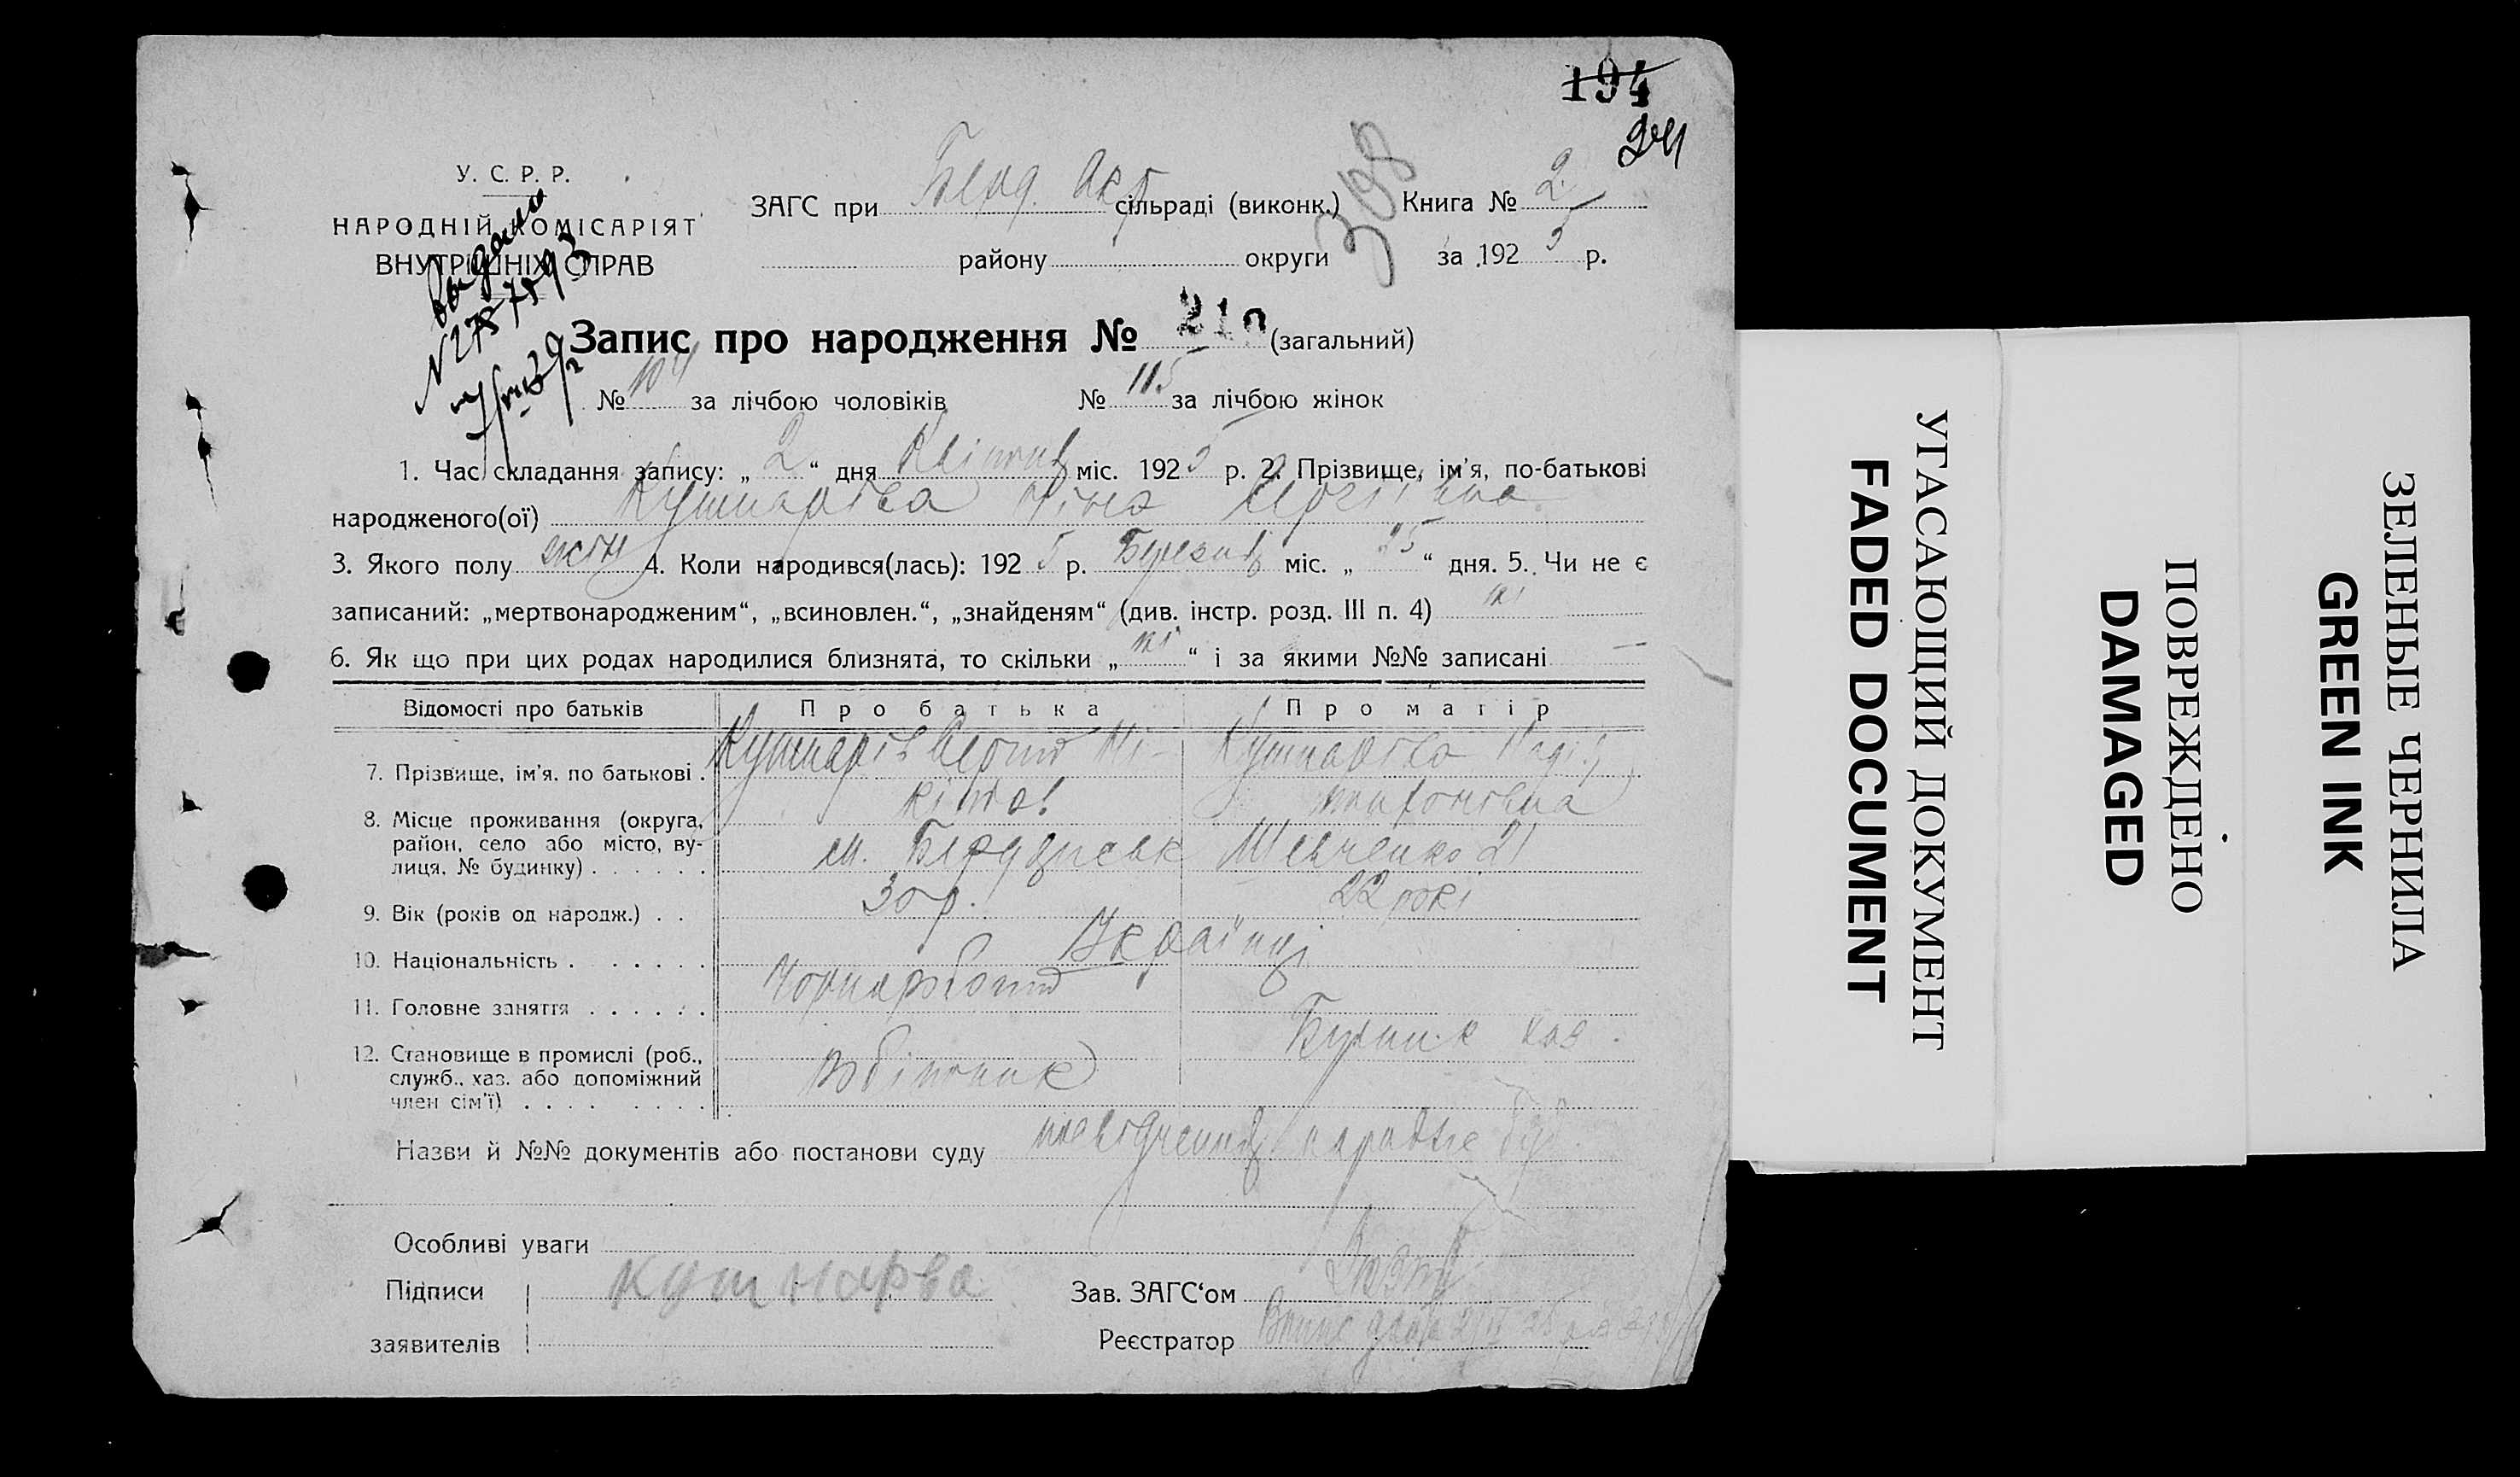 194
24
У. С. Р. Р.
НАРОДНІЙ КОМІСАРІЯТ
ВНУТРІШНІХ СПРАВ
ЗАГС при Берд. Окр сільраді (виконк.) Книга № 2
308
району округи за 1925 р.
Запис про народження № 219 (загальний)
№ 104 за лічбою чоловіків № 115 за лічбою жінок
1. Час складання запису: „2“ дня Квітня міс. 1925 р. 2. Прізвище, ім’я, по-батькові
народженого(ої) Кушнарьова Ніна Сергіївна
3. Якого полу жін 4. Коли народився(лась): 1925 р. Березня міс. „25“ дня. 5. Чи не є
записаний: „мертвонародженим“, „всиновлен.“, „знайденям“ (див. інстр. розд. III п. 4) ні
6. Як що при цих родах народилися близнята, то скільки „ні“ і за якими №№ записані —
Відомості про батьків Про батька Про матір
7. Прізвище, ім’я, по батькові . Кушнарів Сергій Мі-
8. Місце проживання (округа, район, село або місто, вулиця, № будинку) . . . . . . м. Бердянськ Шевченко 21
9. Вік (років од народж.) . . 30 р. 22 рокі
10. Національність . . . . . . Українці
11. Головне заняття . . . . . . Чорноробочий
12. Становище в промислі (роб., служб., хаз. або допоміжний член сім’ї) . . . . . . . . робітник
Назви й №№ документів або постанови суду посвідчення
Особливі уваги
Підписи Кушнарва Зав. ЗАГС‘ом
заявителів Реєстратор
УГАСАЮЩИЙ ДОКУМЕНТ
FADED DOCUMENT
ПОВРЕЖДЕНО
DAMAGED
ЗЕЛЕНЫЕ ЧЕРНИЛА
GREEN INK